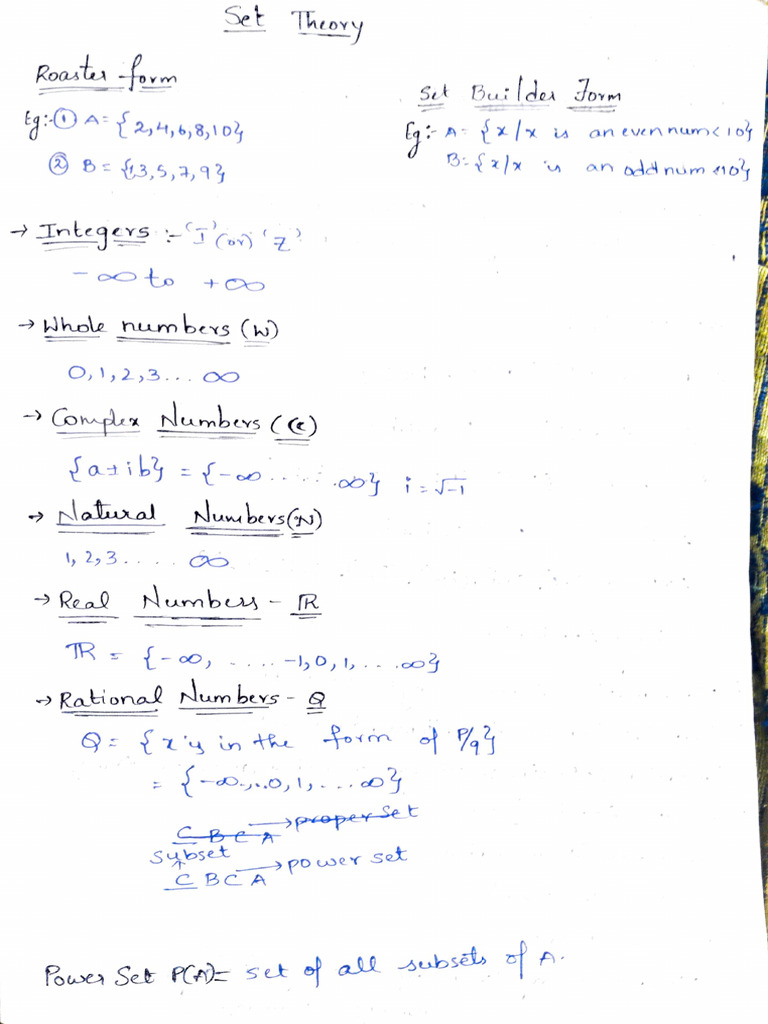 Set Theory
Roaster form
Eg:- ① A = {2,4,6,8,10}
② B = {1,3,5,7,9}
Set Builder Form
Eg:- A = {x/x is an even num<10}
B = {x/x is an odd num <10}
→ Integers :- 'I' (or) 'Z'
-∞ to +∞
→ Whole numbers (W)
0,1,2,3... ∞
→ Complex Numbers (C)
{a+ib} = {-∞ ...... ∞} i = √-1
→ Natural Numbers (N)
1,2,3..... ∞
→ Real Numbers - ℝ
ℝ = {-∞, ..... -1,0,1,....∞}
→ Rational Numbers - Q
Q = {x is in the form of P/q}
= {-∞,..0,1,...∞}
C B C A → proper set
subset
↑
C B C A → power set
Power Set P(A) = set of all subsets of A.